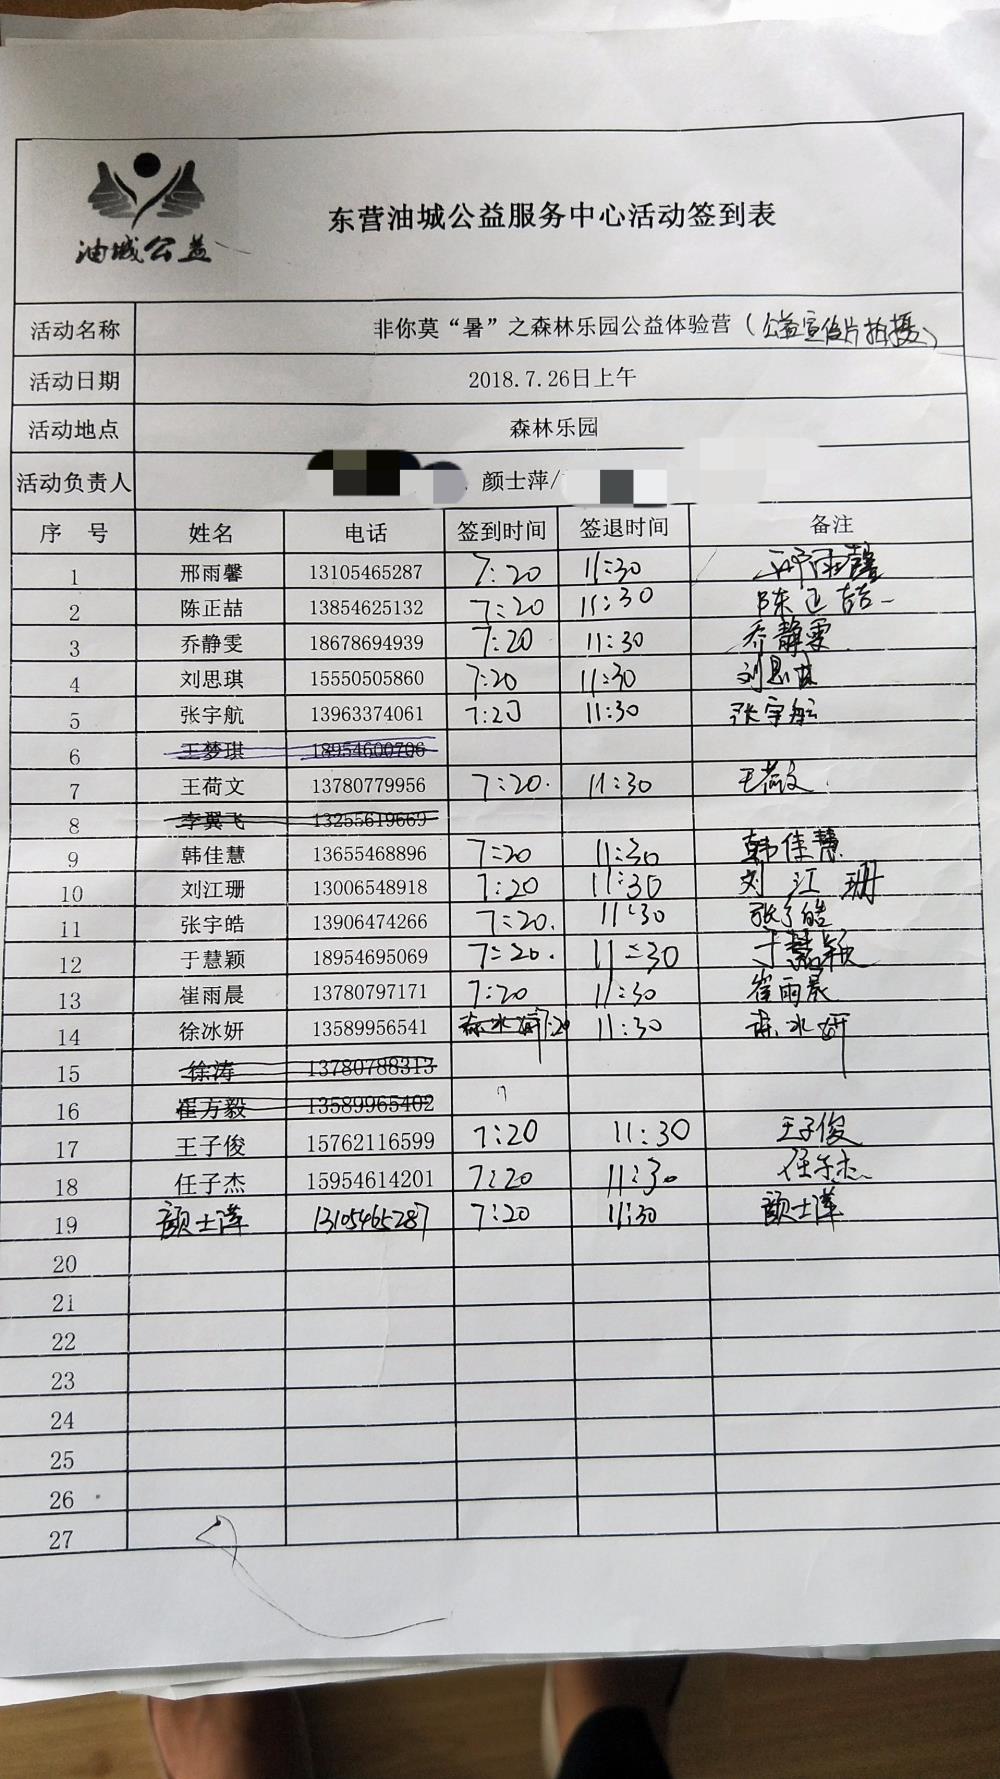 油城公益
东营油城公益服务中心活动签到表
活动名称 非你莫“暑”之森林乐园公益体验营（公益宣传片拍摄）
活动日期 2018.7.26日上午
活动地点 森林乐园
活动负责人 颜士萍/
序 号 姓名 电话 签到时间 签退时间 备注
1 邢雨馨 13105465287 7:20 11:30 邢雨馨
2 陈正喆 13854625132 7:20 11:30 陈正喆
3 乔静雯 18678694939 7:20 11:30 乔静雯
4 刘思琪 15550505860 7:20 11:30 刘思琪
5 张宇航 13963374061 7:20 11:30 张宇航
6 王梦琪 18954600706
7 王荷文 13780779956 7:20. 11:30 王荷文.
8 李翼飞 13255619669
9 韩佳慧 13655468896 7:20 11:30 韩佳慧
10 刘江珊 13006548918 7:20 11:30 刘江珊
11 张宇皓 13906474266 7:20. 11:30 张宇皓
12 于慧颖 18954695069 7:20. 11:30 于慧颖
13 崔雨晨 13780797171 7:20 11:30 崔雨晨
14 徐冰妍 13589956541 徐冰妍 7:20 11:30 徐冰妍
15 徐涛 13780788313
16 崔方毅 13589965402
17 王子俊 15762116599 7:20 11:30 王子俊
18 任子杰 15954614201 7:20 11:30 任子杰
19 颜士萍 13105465287 7:20 11:30 颜士萍
20
21
22
23
24
25
26
27